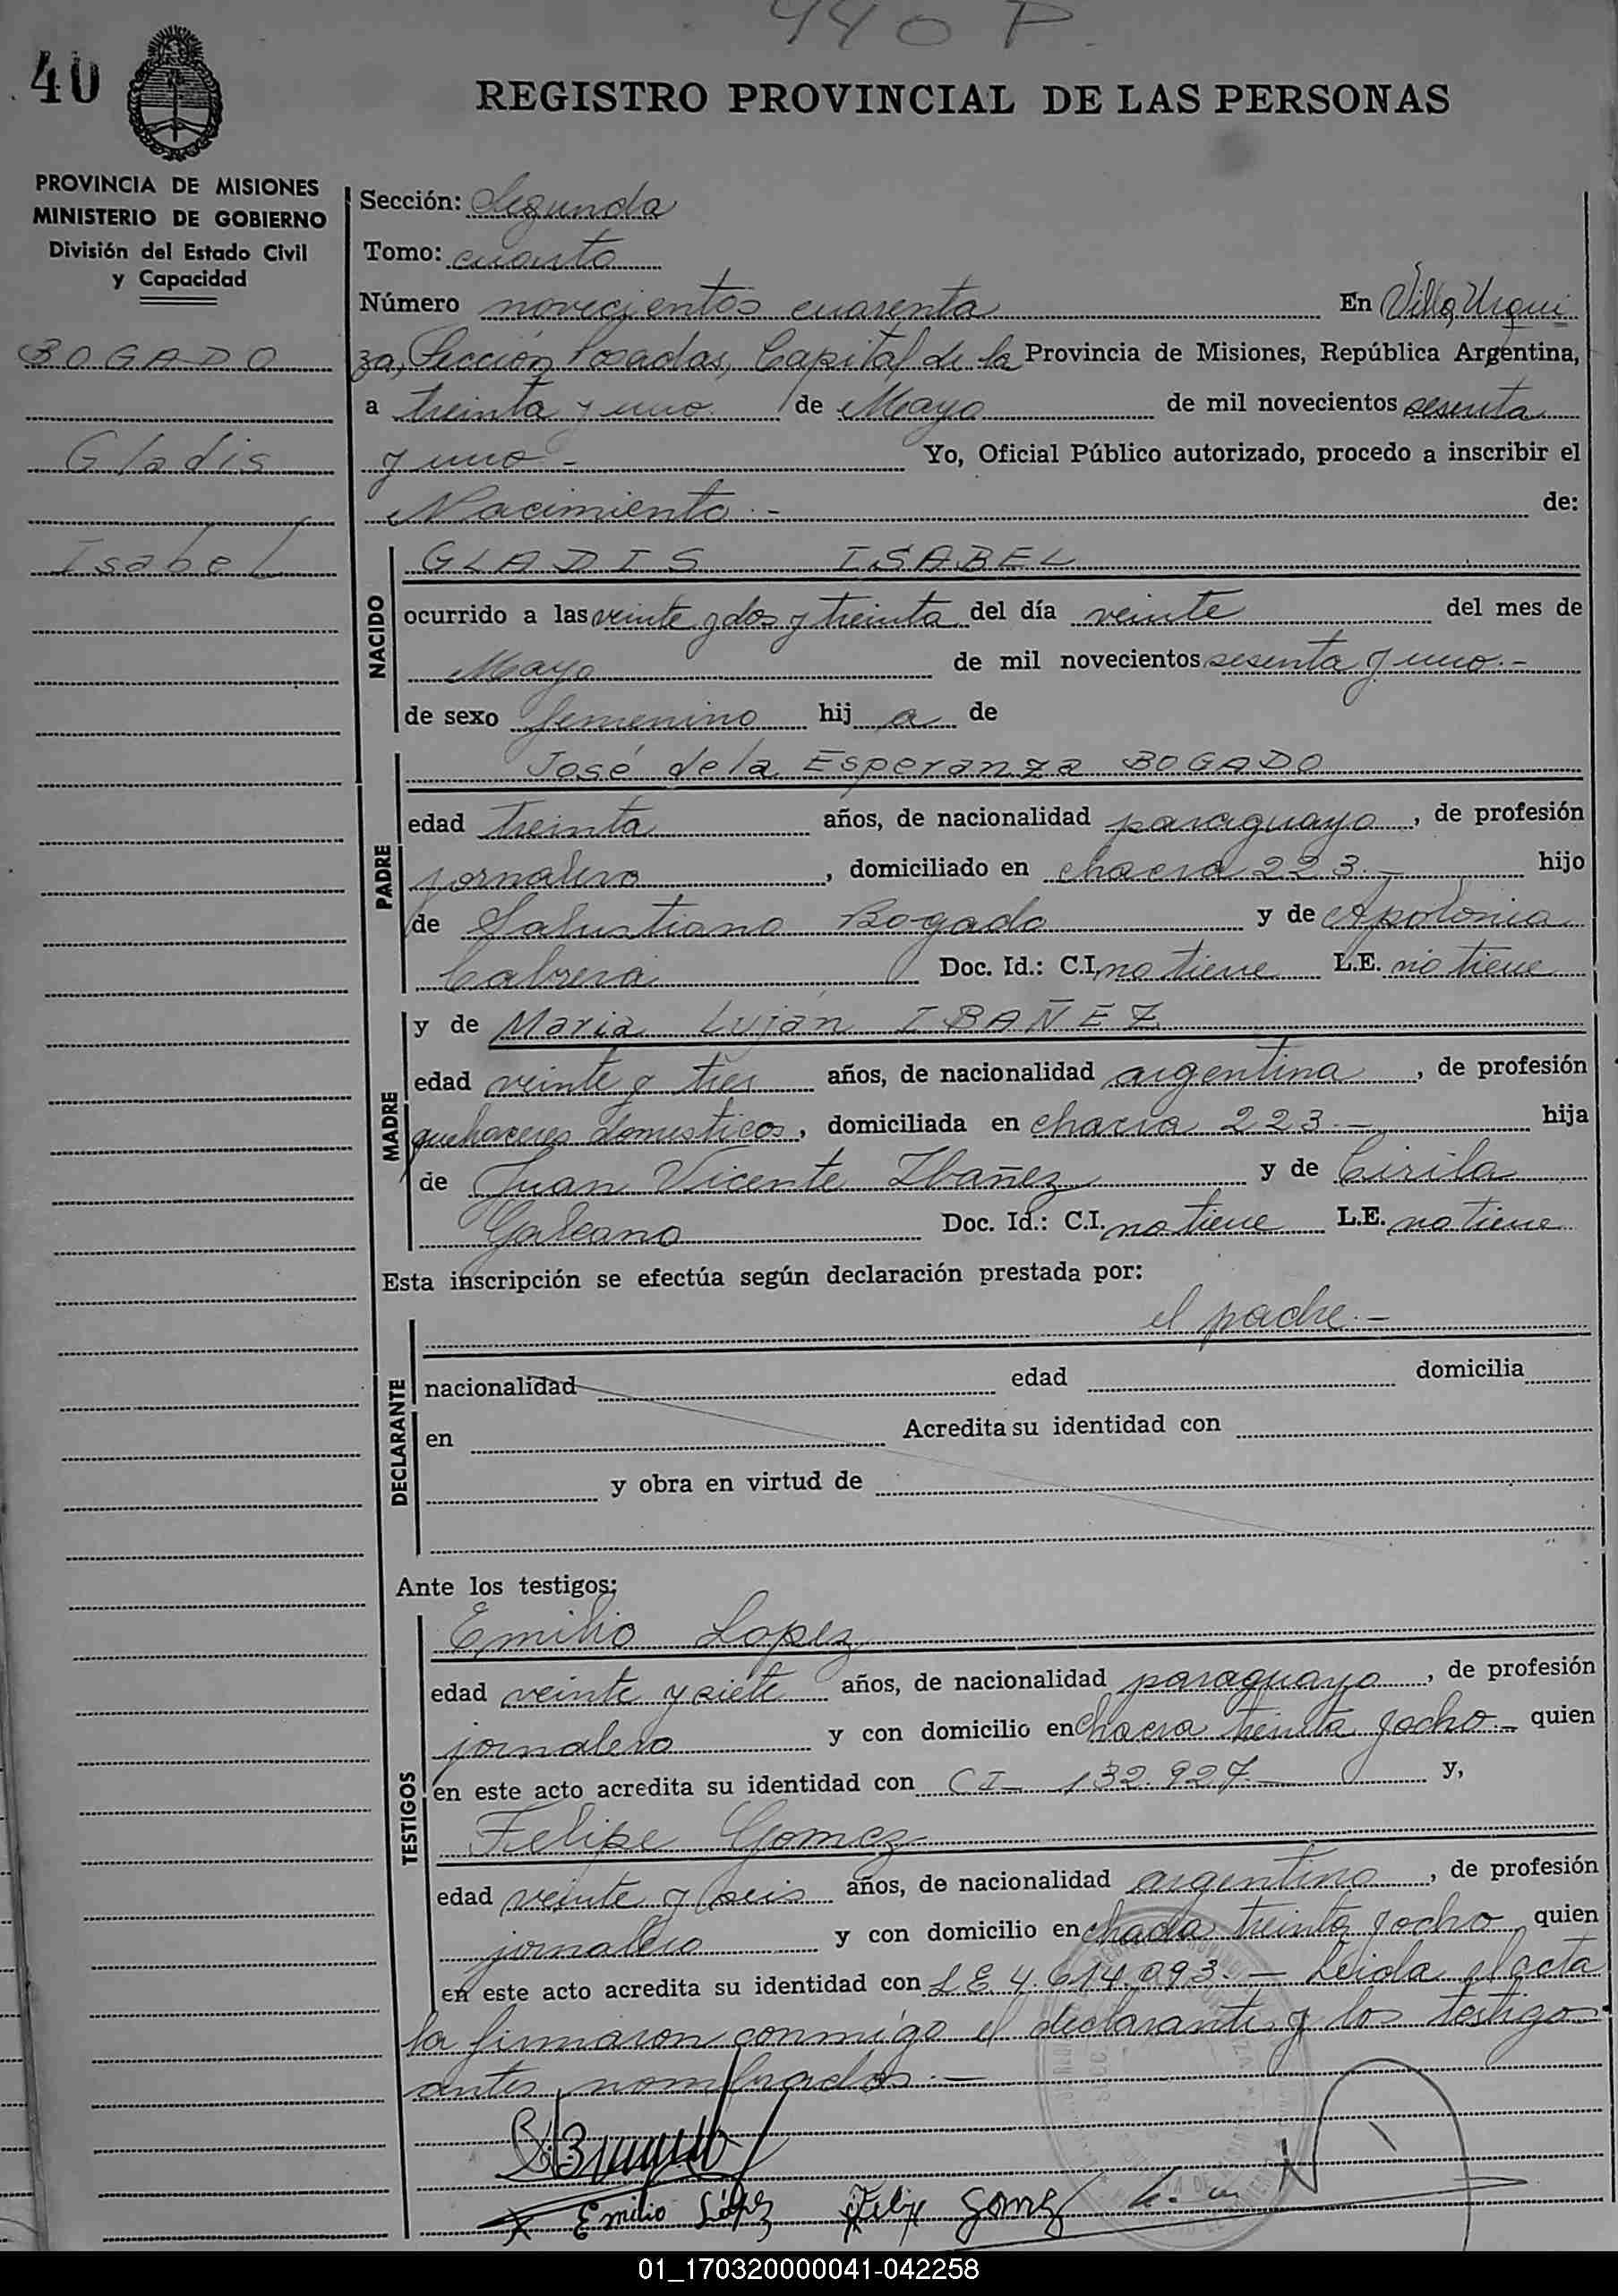 940 P.
40
REGISTRO PROVINCIAL DE LAS PERSONAS
PROVINCIA DE MISIONES
MINISTERIO DE GOBIERNO
División del Estado Civil
y Capacidad
BOGADO
Gladis
Isabel
Sección: Segunda
Tomo: cuarto
Número novecientos cuarenta En Villa Urqui
za, Sección Posadas, Capital de la Provincia de Misiones, República Argentina,
a treinta y uno de Mayo de mil novecientos sesenta
y uno - Yo, Oficial Público autorizado, procedo a inscribir el
Nacimiento.- de:
NACIDO
GLADIS ISABEL
ocurrido a las veinte y dos y treinta del día veinte del mes de
Mayo de mil novecientos sesenta y uno.-
de sexo femenino hij a de
PADRE
José de la Esperanza BOGADO
edad treinta años, de nacionalidad paraguayo, de profesión
jornalero, domiciliado en chacra 223.- hijo
de Salustiano Bogado y de Apolonia
Cabrera Doc. Id.: C.I. no tiene L.E. no tiene
MADRE
y de Maria Luján IBAÑEZ
edad veinte y tres años, de nacionalidad argentina, de profesión
quehaceres domesticos, domiciliada en chacra 223.- hija
de Juan Vicente Ibañez y de Cirila
Galeano Doc. Id.: C.I. no tiene L.E. no tiene
Esta inscripción se efectúa según declaración prestada por:
DECLARANTE
el padre.-
nacionalidad edad domicilia
en Acredita su identidad con
y obra en virtud de
Ante los testigos:
TESTIGOS
Emilio Lopez
edad veinte y siete años, de nacionalidad paraguayo, de profesión
jornalero y con domicilio en chacra treinta y ocho.- quien
en este acto acredita su identidad con CI- 132.927.- y,
Felipe Gomez
edad veinte y seis años, de nacionalidad argentino, de profesión
jornalero y con domicilio en chacra treinta y ocho quien
en este acto acredita su identidad con L E. 4.614.093.- Leida el acta
la firmaron conmigo el declarante y los testigos
antes nombrados.-
Emilio López Felipe Gomez
01_170320000041-042258